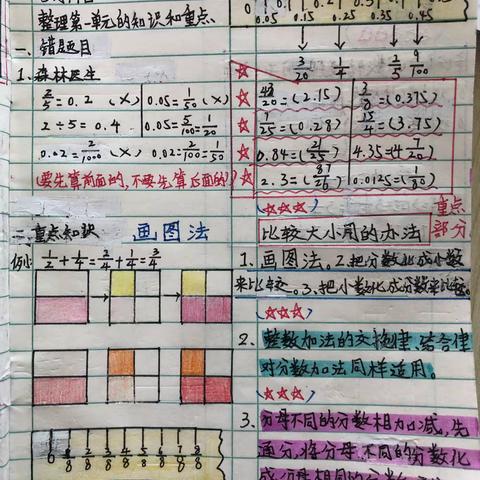 整理第一单元的知识和重点、
一、错题目
1、森林医生
2/5=0.2 (×) 0.05=1/50 (×)
2÷5=0.4 0.05=5/100=1/20
0.02=2/1000 (×) 0.02=2/100=1/50
(要先算前面的,不要先算后面的)
二、重点知识 画图法
例: 1/2+1/4=2/4+1/4=3/4
0 1/8 2/8 3/8 4/8 5/8 6/8 7/8 8/8
0.05 0.15 0.25 0.35 0.45
3/20 1/4 2/5 9/100
43/20=(2.15) 3/8=(0.375)
7/25=(0.28) 15/4=(3.75)
0.84=(21/25) 4.35=(4 7/20)
0.0125=(1/80)
重点
部分
比较大小用的办法
1、画图法。2.把分数化成小数
来比较。3、把小数化成分数来比较。
2、整数加法的交换律、结合律
对分数加法同样适用。
3、分母不同的分数相加减,先
通分,将分母不同的分数化
成分母相同的分数